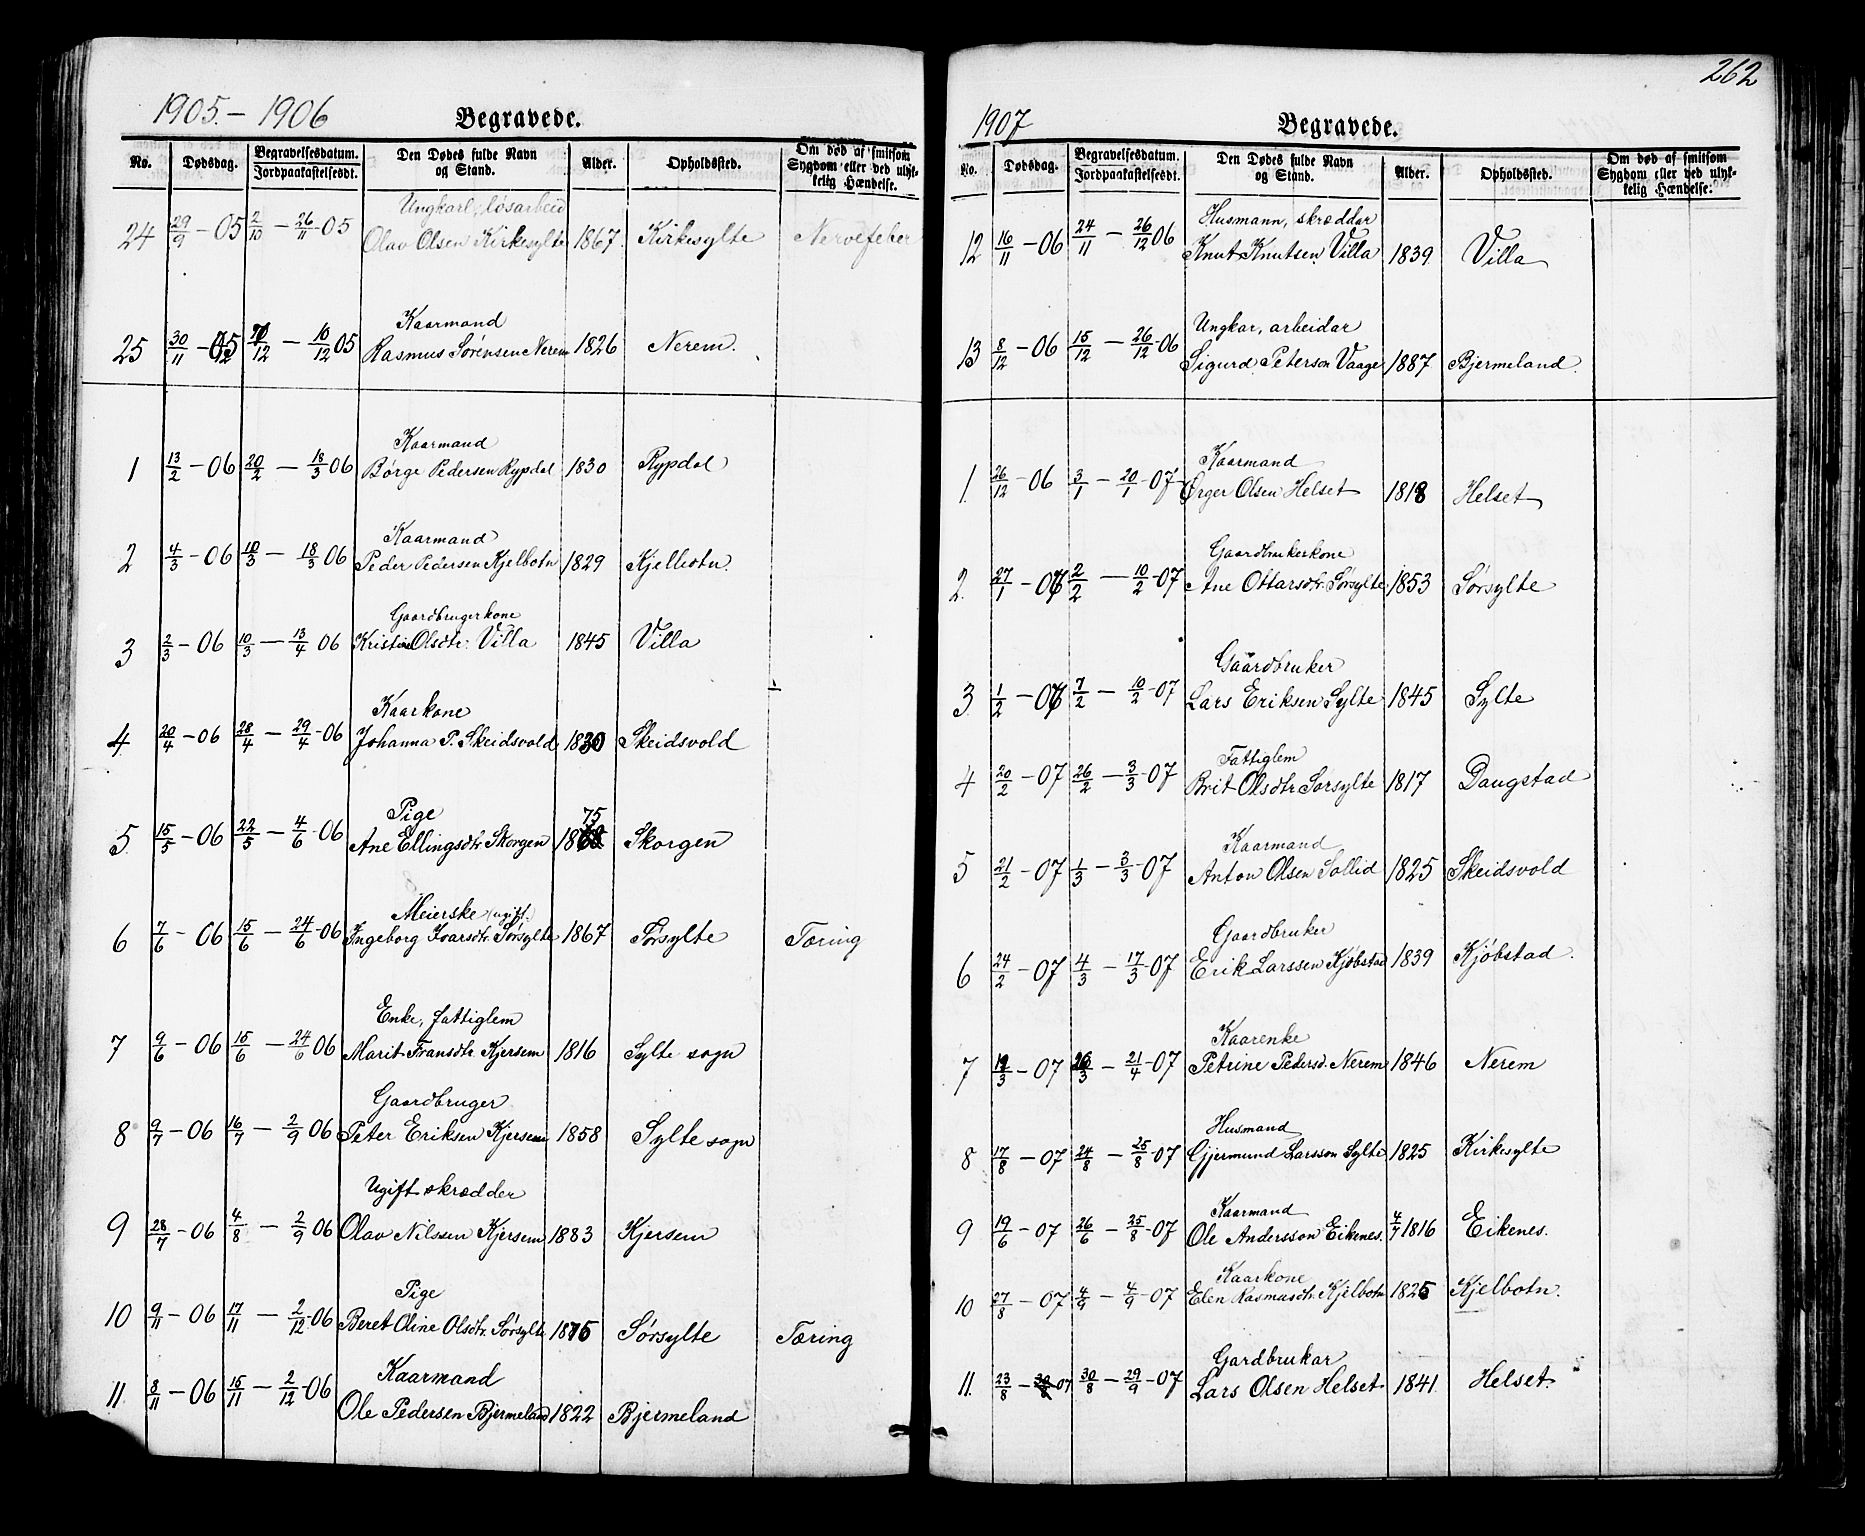 1905. – 1906 Begravede.
No. Dødsdag. Begravelsesdatum. Jordpaakastelsesdt. Den Dødes fulde Navn og Stand. Alder. Opholdssted. Om død af smitsom Sygdom eller ved ulykkelig Hændelse.
Ungkarl, løsarbeid
24 29/9 – 05 2/10 – 26/11 05 Olav Olsen Kirkesylte 1867 Kirkesylte Nervefeber
Kaarmand
25 30/11 – 05 /12 – 10/12 05 Rasmus Sørensen Nerem 1826 Nerem.
Kaarmand
1 13/2 – 06 20/2 – 18/3 06 Børge Pedersen Rypdal 1830 Rypdal
Kaarmand
2 4/3 – 06 10/3 – 18/3 06 Peder Pedersen Kjelbotn 1829 Kjelbotn.
Gaardbrugerkone
3 2/3 – 06 10/3 – 13/4 06 Kristine Olsdtr. Villa 1845 Villa
Kaarkone
4 20/4 – 06 28/4 – 29/4 – 06 Johanna P. Skeidsvold 1830 Skeidsvold
Pige
5 15/5 – 06 22/5 – 4/6 – 06 Ane Ellingsdtr Skorgen 1875 Skorgen
Meierske (ugift.)
6 7/6 – 06 15/6 – 24/6 06 Ingeborg Ivarsdtr. Sørsylte 1867 Sørsylte Tæring
Enke, fattiglem
7 9/6 – 06 15/6 – 24/6 06 Marit Fransdtr. Kjersem 1816 Sylte sogn
Gaardbruger
8 9/7 – 06 16/7 – 2/9 06 Peter Eriksen Kjersem 1858 Sylte sogn
Ugift skrædder
9 28/7 – 06 4/8 – 2/9 06 Olav Nilssen Kjersem 1883 Kjersem
Pige
10 9/11 – 06 17/11 – 2/12 – 06 Beret Oline Olsdtr. Sørsylte 1875 Sørsylte Tæring
Kaarmand
11 8/11 – 06 15/11 – 2/12 – 06 Ole Pedersen Bjermeland 1822 Bjermeland
262
1907 Begravede.
No. Dødsdag. Begravelsesdatum. Jordpaakastelsesdt. Den Dødes fulde Navn og Stand. Alder. Opholdssted. Om død af smitsom Sygdom eller ved ulykkelig Hændelse:
Husmann, skræddar
12 16/11 – 06 24/11 – 26/12 06 Knut Knutsen Villa 1839 Villa
Ungkar, arbeidar
13 8/12 – 06 15/12 – 26/12 – 06 Sigurd Peterson Vaage 1887 Bjermeland.
Kaarmand
1. 26/12 – 06 3/1 – 20/1 – 07 Ørger Olsen Helset 1818 Helset
Gaardbrukerkone
2. 27/1 – 07 2/2 – 10/2 – 07 Ane Ottarsdtr. Sørsylte 1853 Sørsylte
Gaardbruker
3. 1/2 – 07 7/2 – 10/2 – 07 Lars Eriksen Sylte 1845 Sylte
Fattiglem
4 20/2 – 07 26/2 – 3/3 – 07 Brit Olsdtr Sørsylte 1817 Daugstad
Kaarmand
5 21/2 – 07 1/3 – 3/3 – 07 Anton Olsen Sollid 1825 Skeidsvold
Gaardbruker
6 24/2 – 07 4/3 – 17/3 – 07 Erik Larssen Kjøbstad 1839 Kjøbstad.
Kaarenke
7 /3 – 07 /3 – 21/4 – 07 Petrine Pedersd. Nerem 1846 Nerem
Husmand
8 17/8 – 07 24/8 – 25/8 – 07 Gjermund Larsson Sylte 1825 Kirkesylte
Kaarmand
9 19/6 – 07 26/6 – 25/8 – 07 Ole Andersson Eikenes. 4/7 1816 Eikenes.
Kaarkone
10 27/8 – 07 4/9 – 4/9 – 07 Elen Rasmusdtr. Kjelbotn 1826 Kjelbotn.
Gardbrukar
11. 23/8 – 07 30/8 – 29/9 – 07 Lars Olsen Helset 1841. Helset.